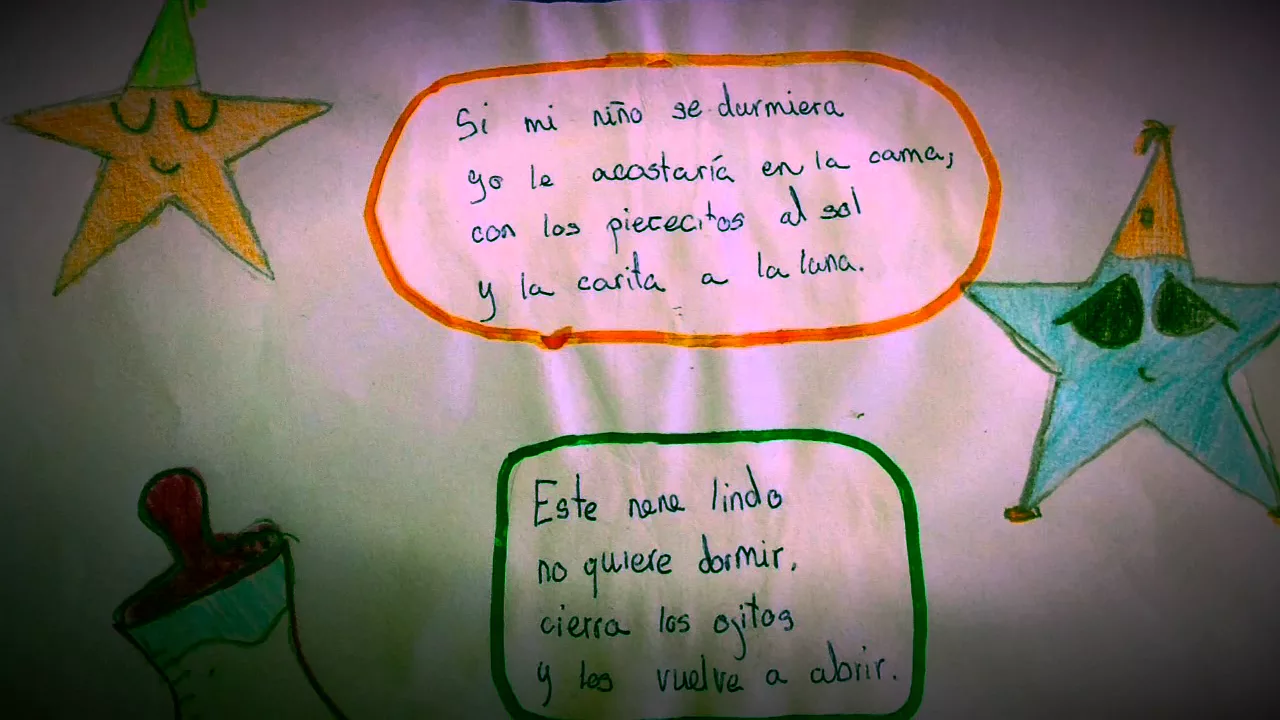 Si mi niño se durmiera
yo le acostaría en la cama,
con los piececitos al sol
y la carita a la luna.
Este nene lindo
no quiere dormir,
cierra los ojitos
y los vuelve a abrir.